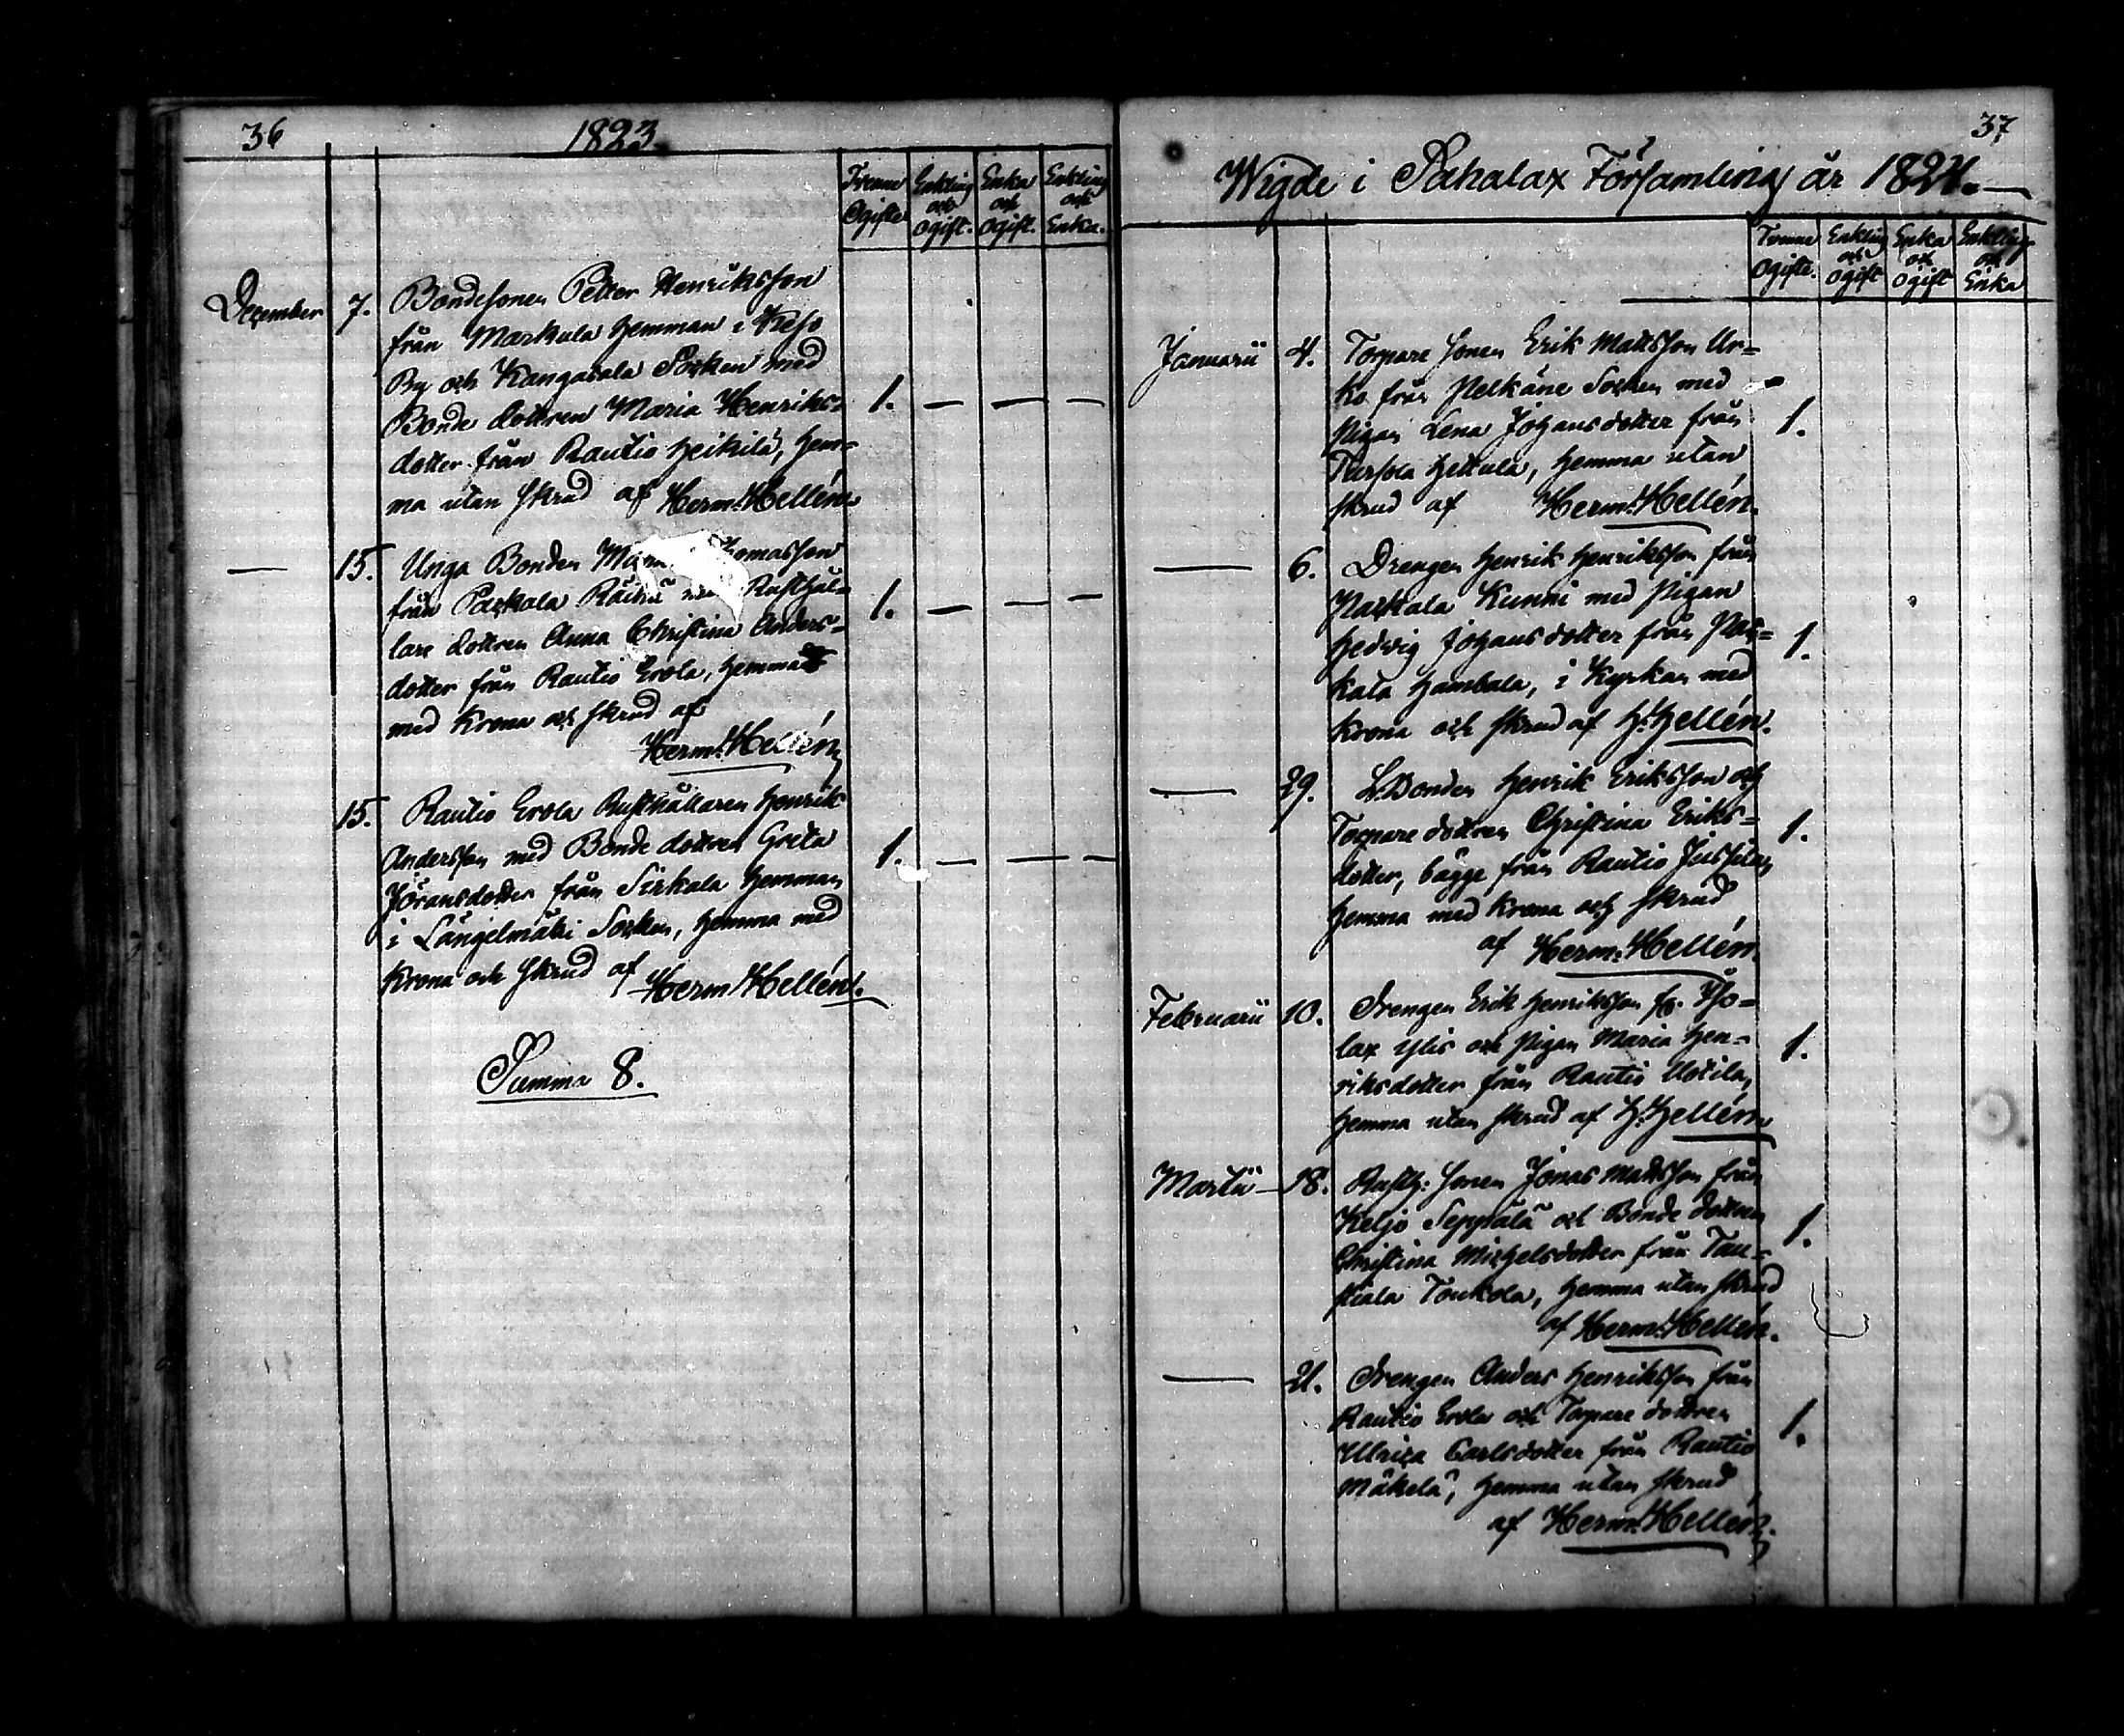 36
1823
Tvenne Ogifte
Enkling och ogift.
Enka och ogift.
Enkling och Enka.
December 7. Bondesonen Petter Henriksson
från Markula hemman i Keso
By och Kangasala Socken med
Bonde dottren Maria Henriks= 1. — — —
dotter från Rautio Heikilä, hem=
ma utan skrud af Herm: Hellén
— 15. Unga Bonden Thomasson
från Packala Rusthål= 1. — — —
lare dottren Anna Christina Anders=
dotter från Rautio Erola, hemma
med Krona och skrud af
Herm: Hellén
15. Rautio Erola Rusthållaren Henrik
Andersson med Bonde dottren Greta 1. — — —
Jöransdotter från Sirkala hemman
i Längelmäki Socken, hemma med
Krona och skrud af Herm Hellén.
Summa 8.
37
Wigde i Sahalax Församling år 1824.
Tvenne Ogifte.
Enkling och ogift
Enka och ogift
Enkling och Enka
Januarii 4. Torpare sonen Erik Mattsson Ur=
ko från Pelkäne Socken med
Pigan Lena Johansdotter från 1.
Tursola Hettula, hemma utan
skrud af Herm: Hellén.
— 6. Drengen Henrik Henriksson från
Packala Kunni med Pigan
Hedvig Johansdotter från Pac= 1.
kala Hambala, i Kyrkan med
Krona och skrud af H: Hellén.
— 29. L. Bonden Henrik Eriksson och
Torpare dottren Christina Eriks= 1.
dotter, bägge från Rautio Jussila,
hemma med Krona och skrud
af Herm: Hellén.
Februarii 10. Drengen Erik Henriksson fr.
lax Ylis och Pigan Maria Hen= 1.
riksdotter från Rautio Uotila,
hemma utan skrud af H: Hellén
Martii 18. Rusth: sonen Jonas Mattsson från
Keljo Seppälä och Bonde dottren 1.
Christina Michelsdotter från
Toukola, hemma utan skrud
af Herm: Hellén.
— 21. Drengen Anders Henriksson från
Rautio Erola och Torpare dottren 1.
Ulrica Carlsdotter från Rautio
Mäkelä, hemma utan skrud
af Herm: Hellén.